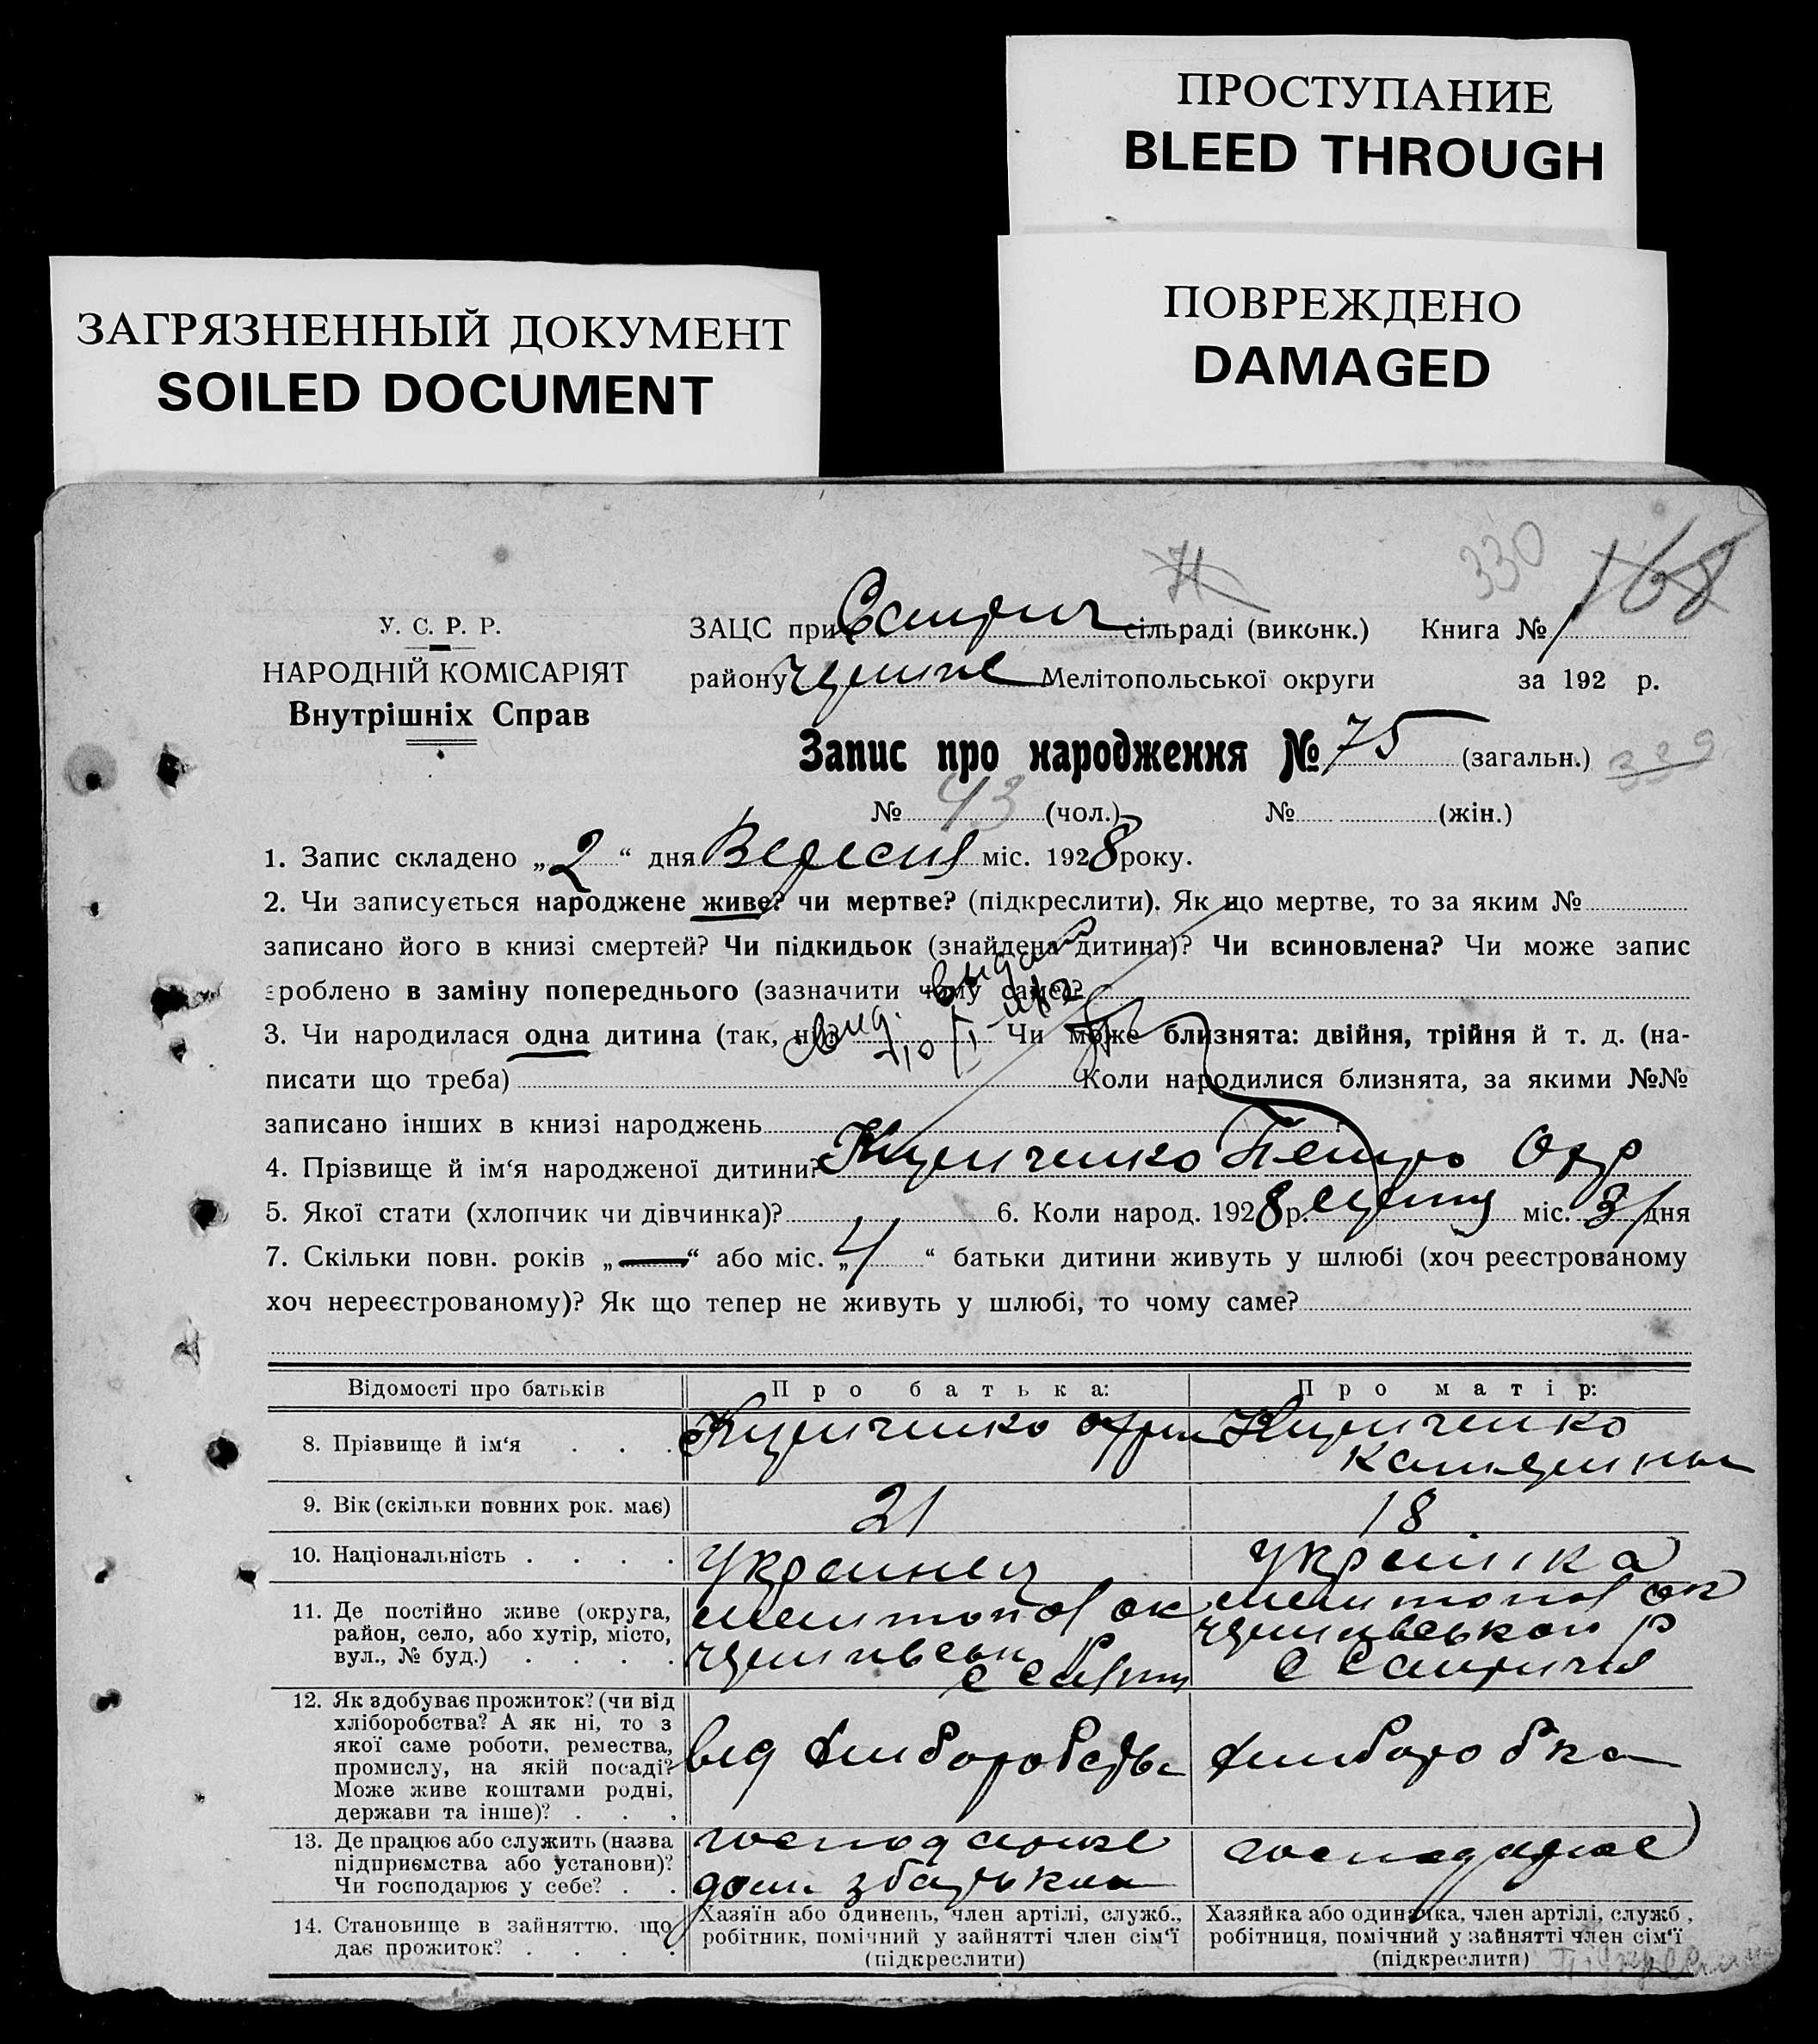 ПРОСТУПАНИЕ
BLEED THROUGH
ПОВРЕЖДЕНО
DAMAGED
ЗАГРЯЗНЕННЫЙ ДОКУМЕНТ
SOILED DOCUMENT
330
168
У. С. Р. Р.
НАРОДНІЙ КОМІСАРІЯТ
Внутрішніх Справ
ЗАЦС при сільраді (виконк.) Книга №
району Мелітопольської округи за 192 р.
Запис про народження № 75 (загальн.) 339
№ 43 (чол.) № (жін.)
1. Запис складено „2“ дня Вересня міс. 1928 року.
2. Чи записується народжене живе? чи мертве? (підкреслити). Як що мертве, то за яким №
записано його в книзі смертей? Чи підкидьок (знайдена дитина)? Чи всиновлена? Чи може запис
зроблено в заміну попереднього (зазначити чому саме)?
3. Чи народилася одна дитина (так, ні)? Чи може близнята: двійня, трійня й т. д. (на-
писати що треба) Коли народилися близнята, за якими №№
записано інших в книзі народжень
4. Прізвище й ім‘я народженої дитини? Петро
5. Якої стати (хлопчик чи дівчинка)? 6. Коли народ. 1928 р. міс. 31 дня
7. Скільки повн. років „—“ або міс. „4“ батьки дитини живуть у шлюбі (хоч реєстрованому
хоч нереєстрованому)? Як що тепер не живуть у шлюбі, то чому саме?
Відомості про батьків Про батька: Про матір:
8. Прізвище й ім‘я
9. Вік (скільки повних рок. має) 21 18
10. Національність Украинец Українка
11. Де постійно живе (округа,
район, село, або хутір, місто,
вул., № буд.) Мелитопол ок Мелитопол ок
12. Як здобуває прожиток? (чи від
хліборобства? А як ні, то з
якої саме роботи, ремества,
промислу, на якій посаді?
Може живе коштами родні,
держави та інше)? від хлиборобства хлиборобка
13. Де працює або служить (назва
підприємства або установи)?
Чи господарює у себе? господарює з батьком господарює
14. Становище в зайняттю, що
дає прожиток?
Хазяїн або одинець, член артілі, служб.,
робітник, помічний у зайнятті член сім‘ї
(підкреслити)
Хазяйка або одиначка, член артілі, служб,
робітниця, помічний у зайнятті член сім‘ї
(підкреслити)